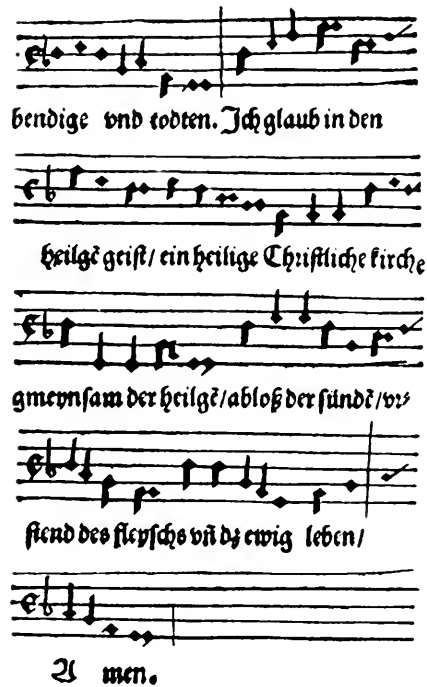 bendige vnd todten. Ich glaub in den
heilgē geist/ ein heilige Christliche kirche
gmeynsam der heilgē/abloß der sündē/vr⸗
stend des fleyschs vñ dz ewig leben/
A men.